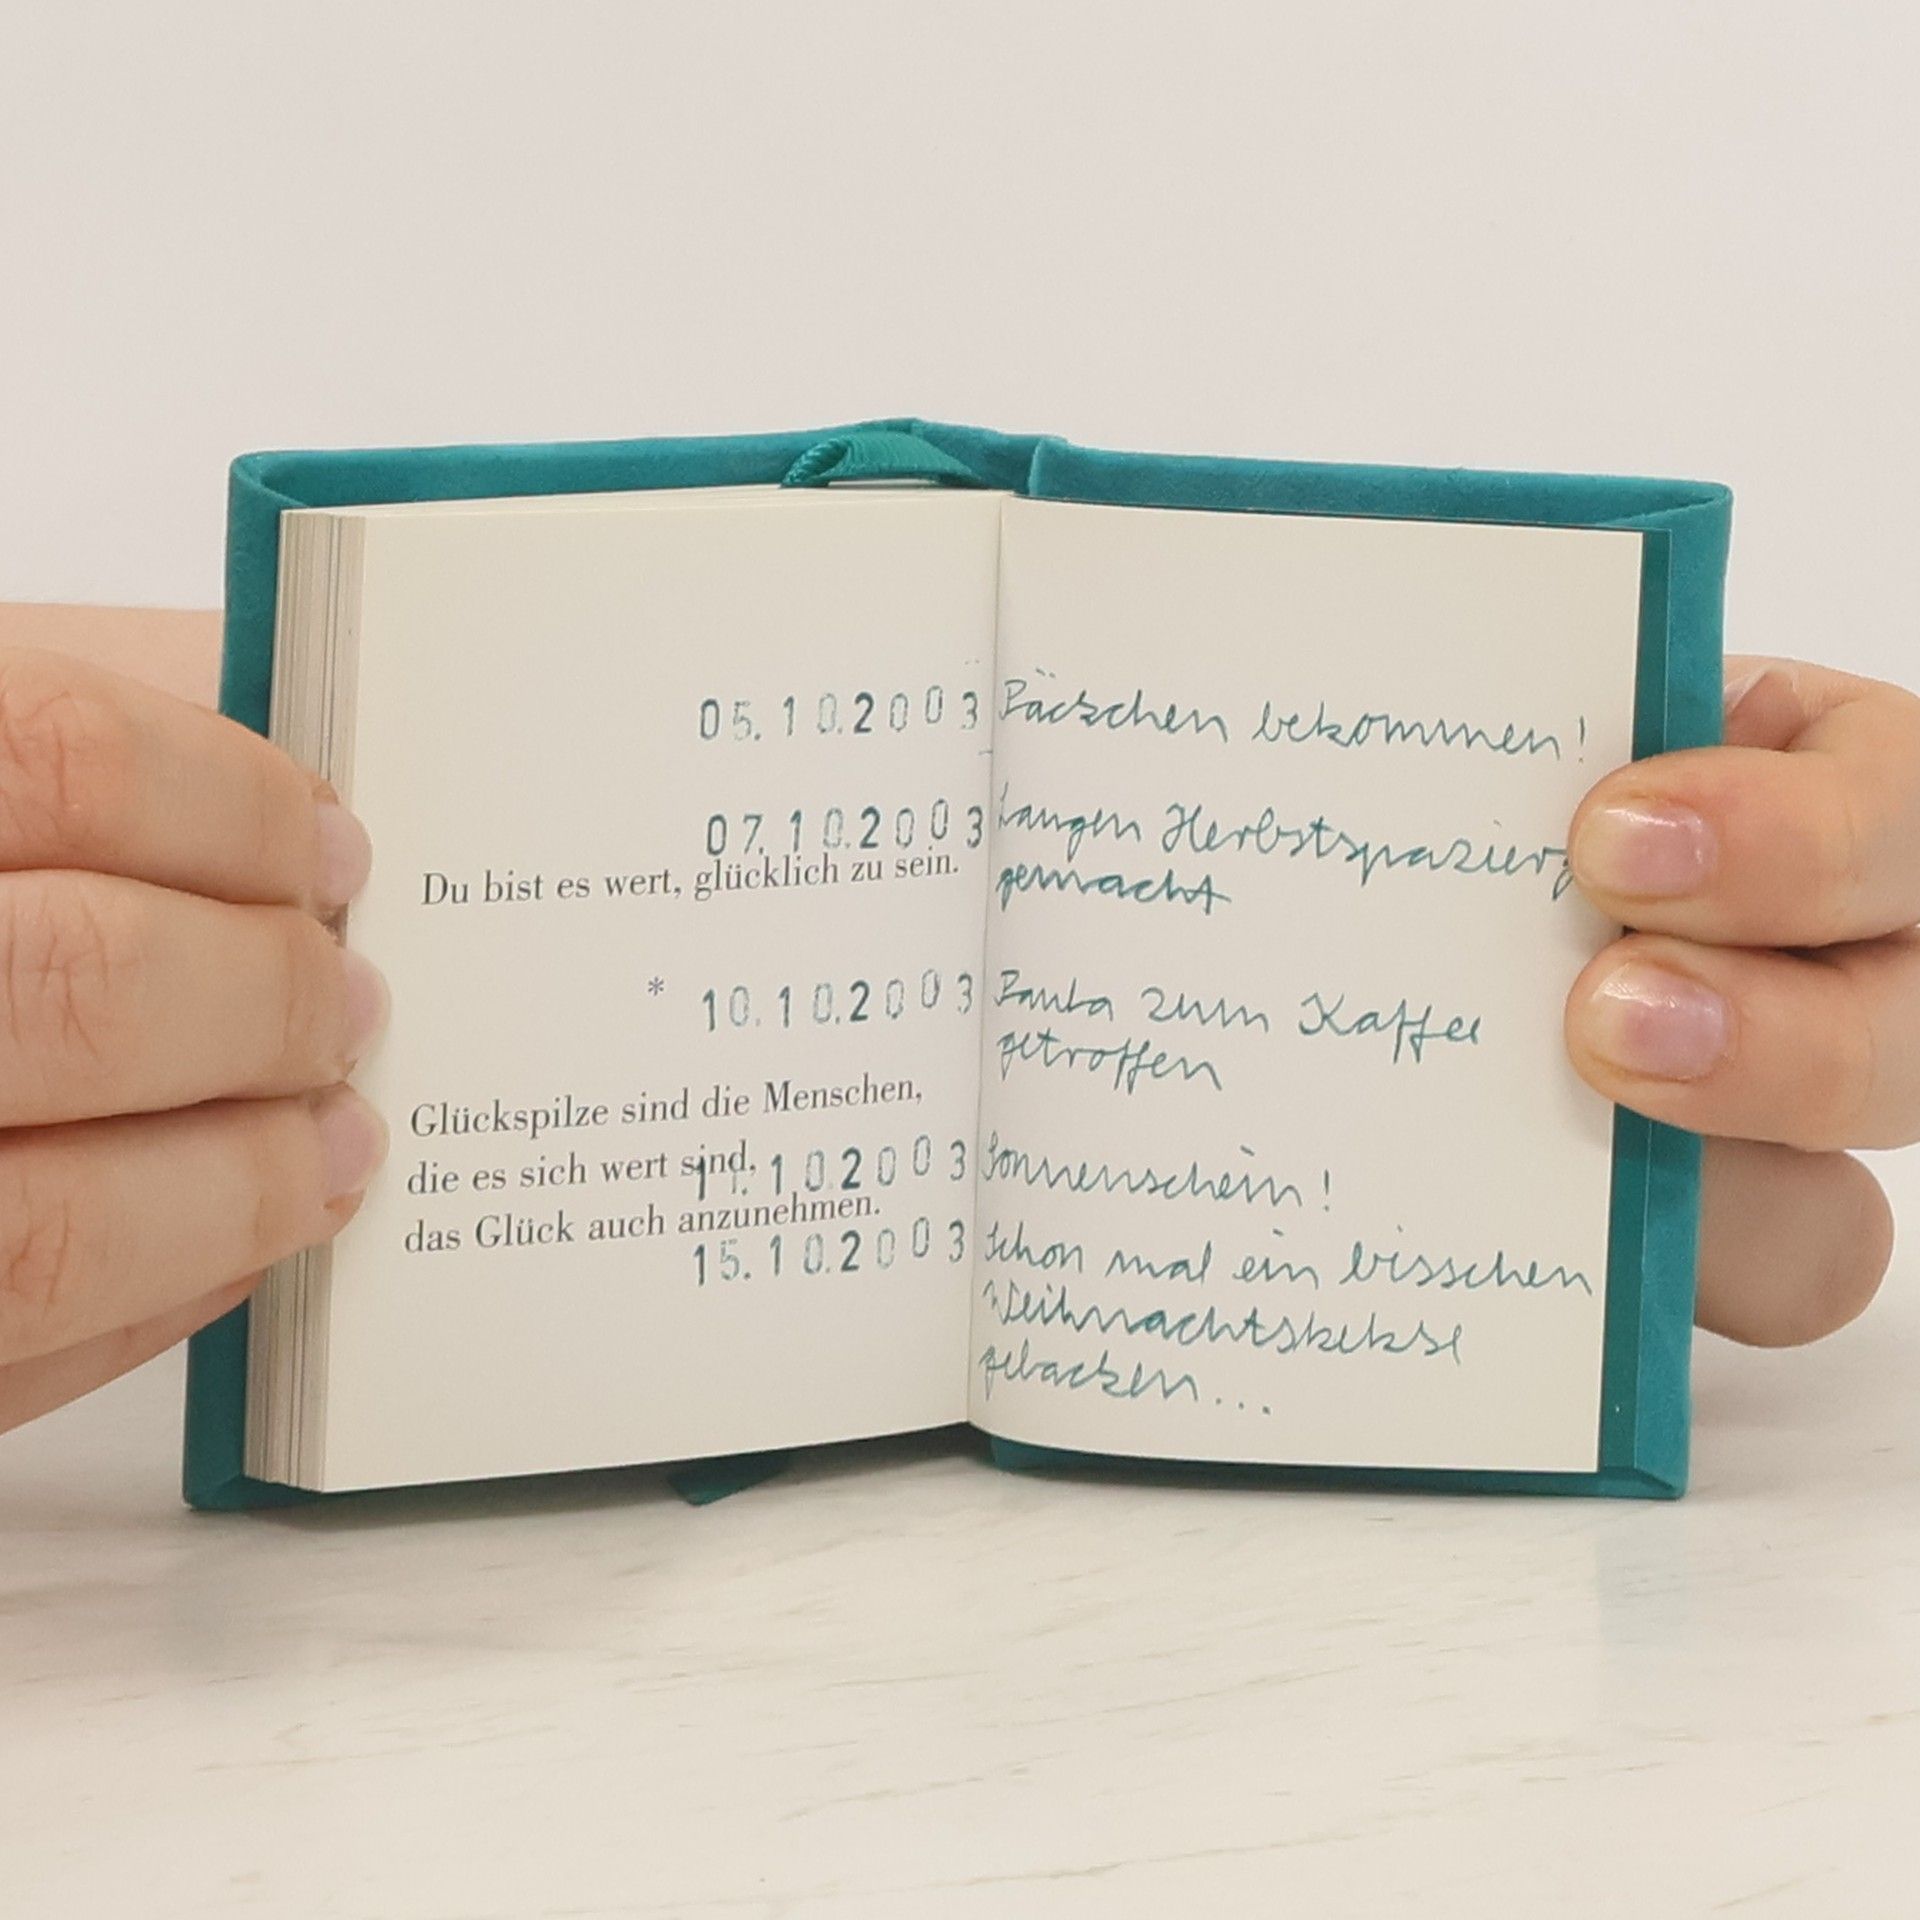 05.10.2003 Päckchen bekommen!
07.10.2003 Langen Herbstspazierg
Du bist es wert, glücklich zu sein.
gemacht
*
10.10.2003 Paula zum Kaffee
getroffen
Glückspilze sind die Menschen,
die es sich wert sind,
11.10.2003 Sonnenschein!
das Glück auch anzunehmen.
15.10.2003 Schon mal ein bisschen
Weihnachtskekse
gebacken...